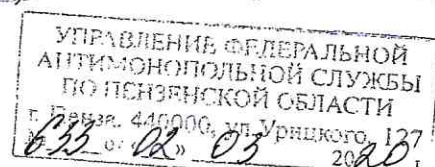 УПРАВЛЕНИЕ ФЕДЕРАЛЬНОЙ
АНТИМОНОПОЛЬНОЙ СЛУЖБЫ
ПО ПЕНЗЕНСКОЙ ОБЛАСТИ
г. Пенза, 440000, ул. Урицкого, 127
№ 633 от 02 » 03 2020 г.